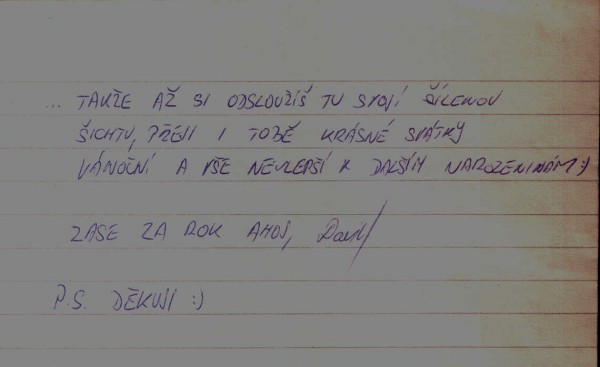 ... TAKŽE AŽ SI ODSLOUŽÍŠ TU SVOJÍ ŠÍLENOU
ŠICHTU, PŘEJI I TOBĚ KRÁSNÉ SVÁTKY
VÁNOČNÍ A VŠE NEJLEPŠÍ K DALŠÍM NAROZENINÁM :)
ZASE ZA ROK AHOJ,
P.S. DĚKUJI :)